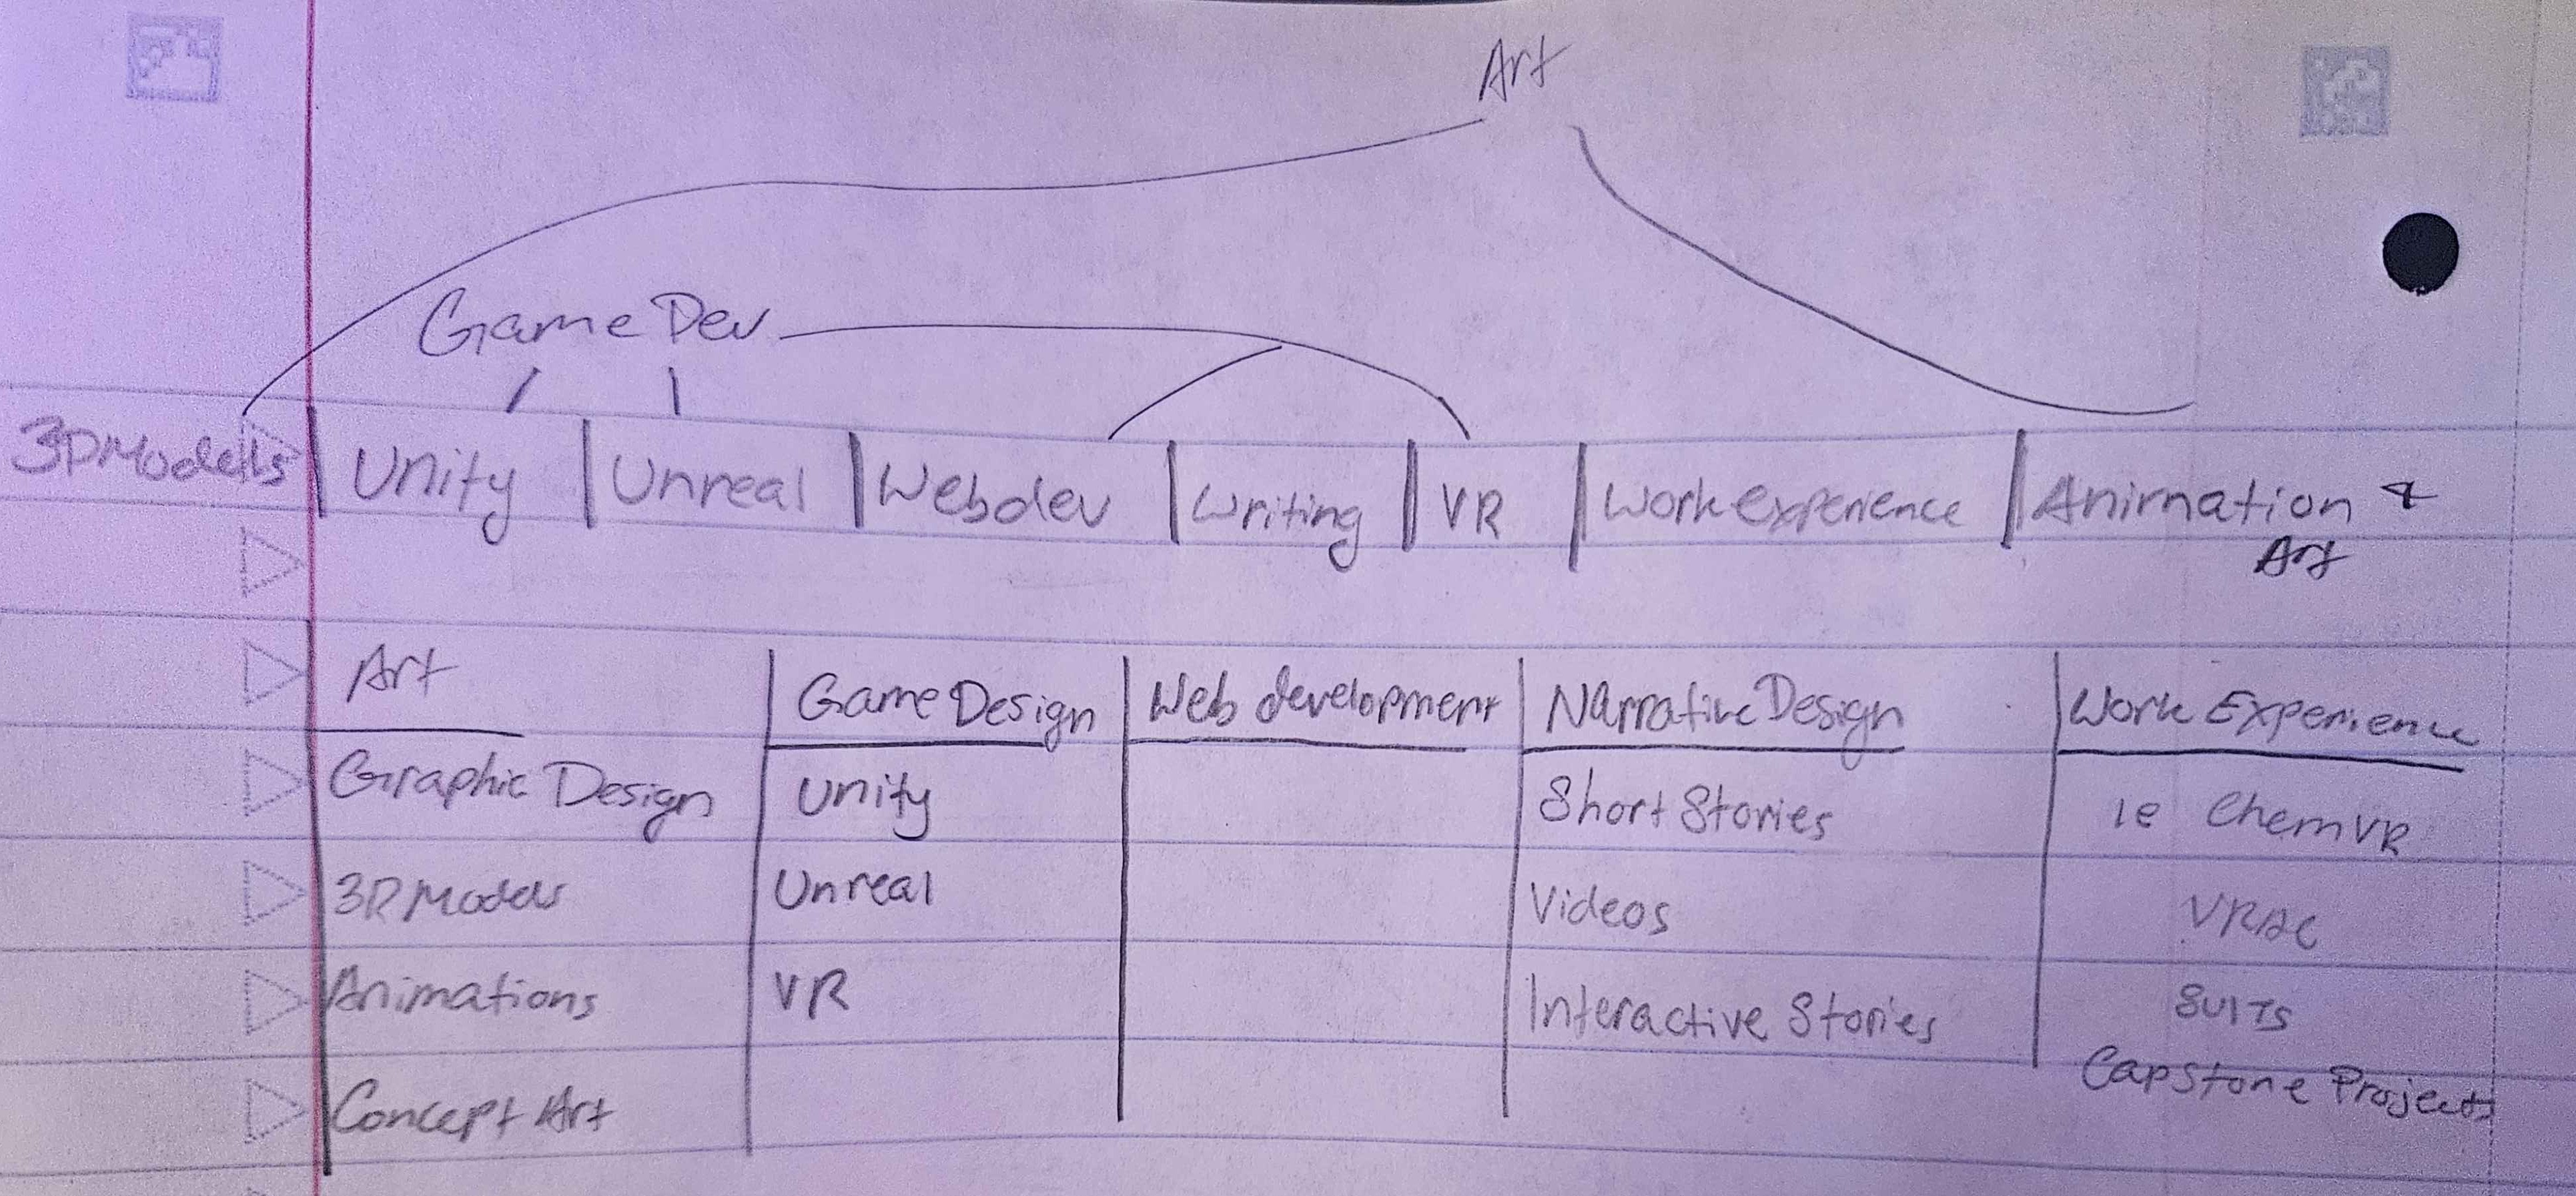 Art
Game Dev
3D Models | Unity | Unreal | Webdev | writing | VR | Work experience | Animation &
Art
Art | Game Design | Web development | Narrative Design | Work Experience
Graphic Design | Unity | Short Stories | ie ChemVR
3D Models | Unreal | Videos | VRAC
Animations | VR | Interactive Stories | SUITS
Concept Art | Capstone Projects